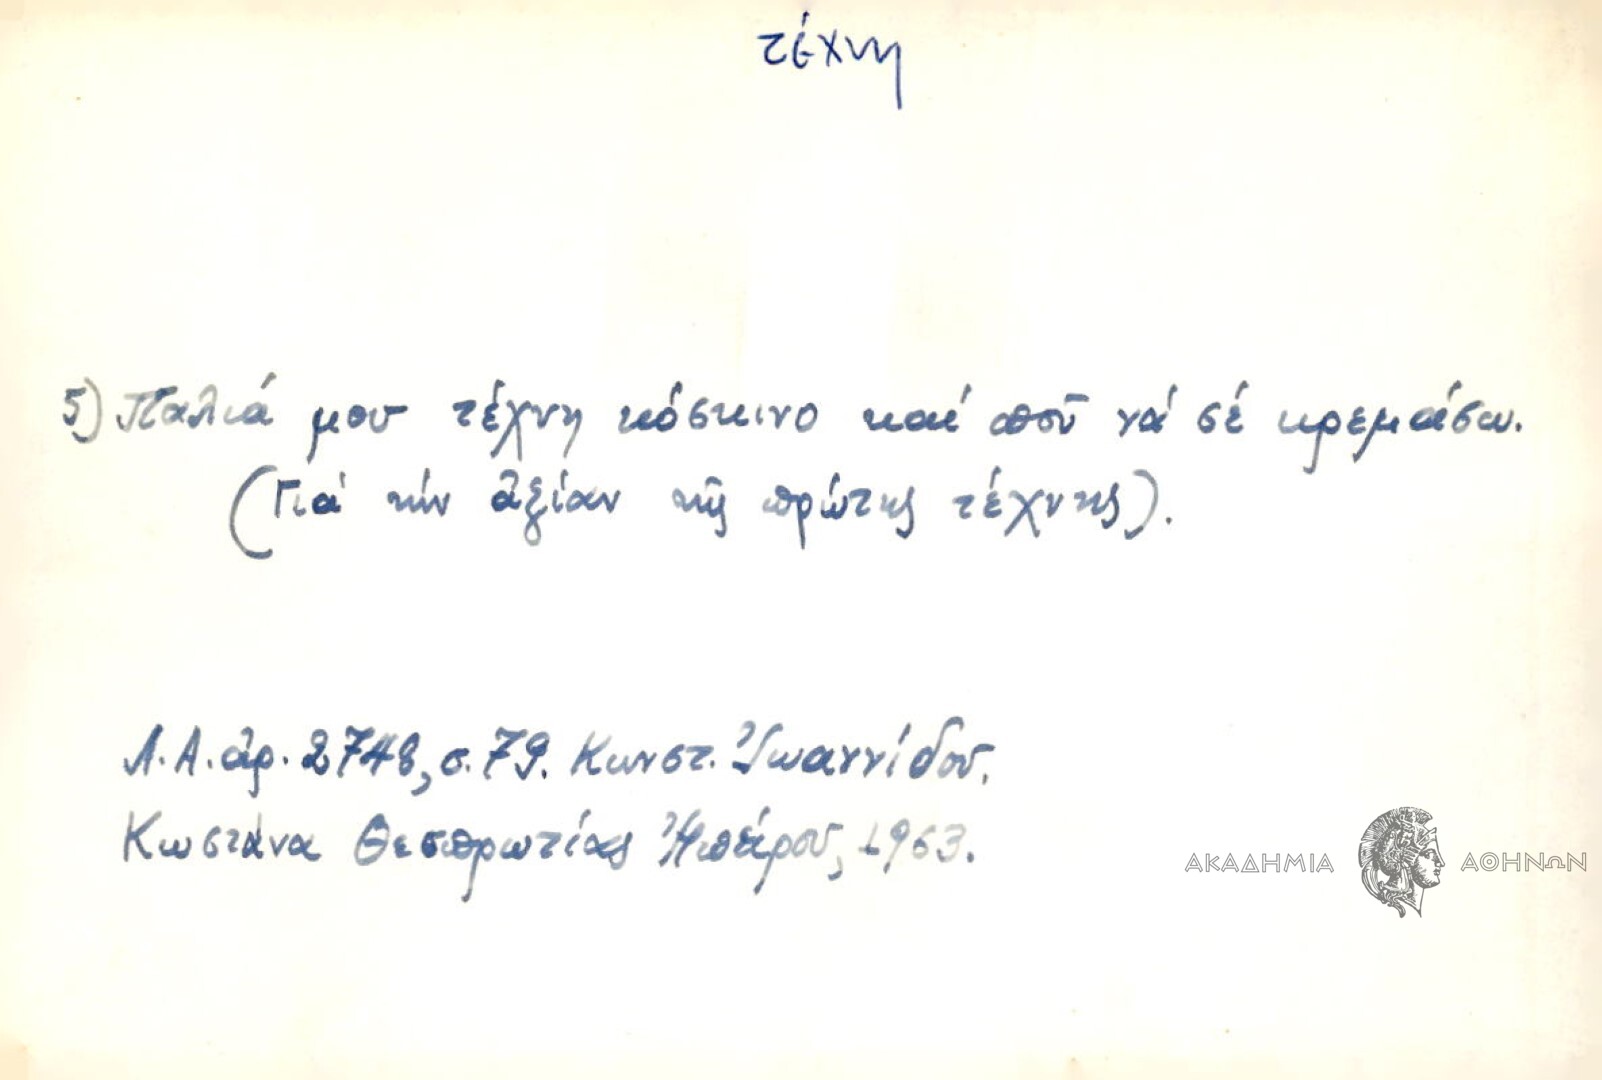 τέχνη
5) Παλιά μου τέχνη κόσκινο καί ποῦ νά σέ κρεμάσω.
(Γιά τήν ἀξίαν τῆς πρώτης τέχνης).
Λ.Α. ἀρ. 2748, σ. 79. Κωνστ. Ἰωαννίδου.
Κωστάνα Θεσπρωτίας Ἠπείρου, 1963.
ΑΚΑΔΗΜΙΑ ΑΘΗΝΩΝ